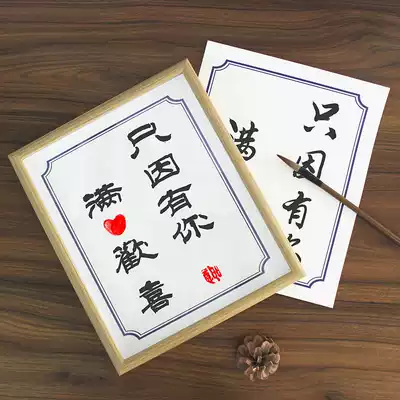 只因有你
满❤歡喜
只因有
满